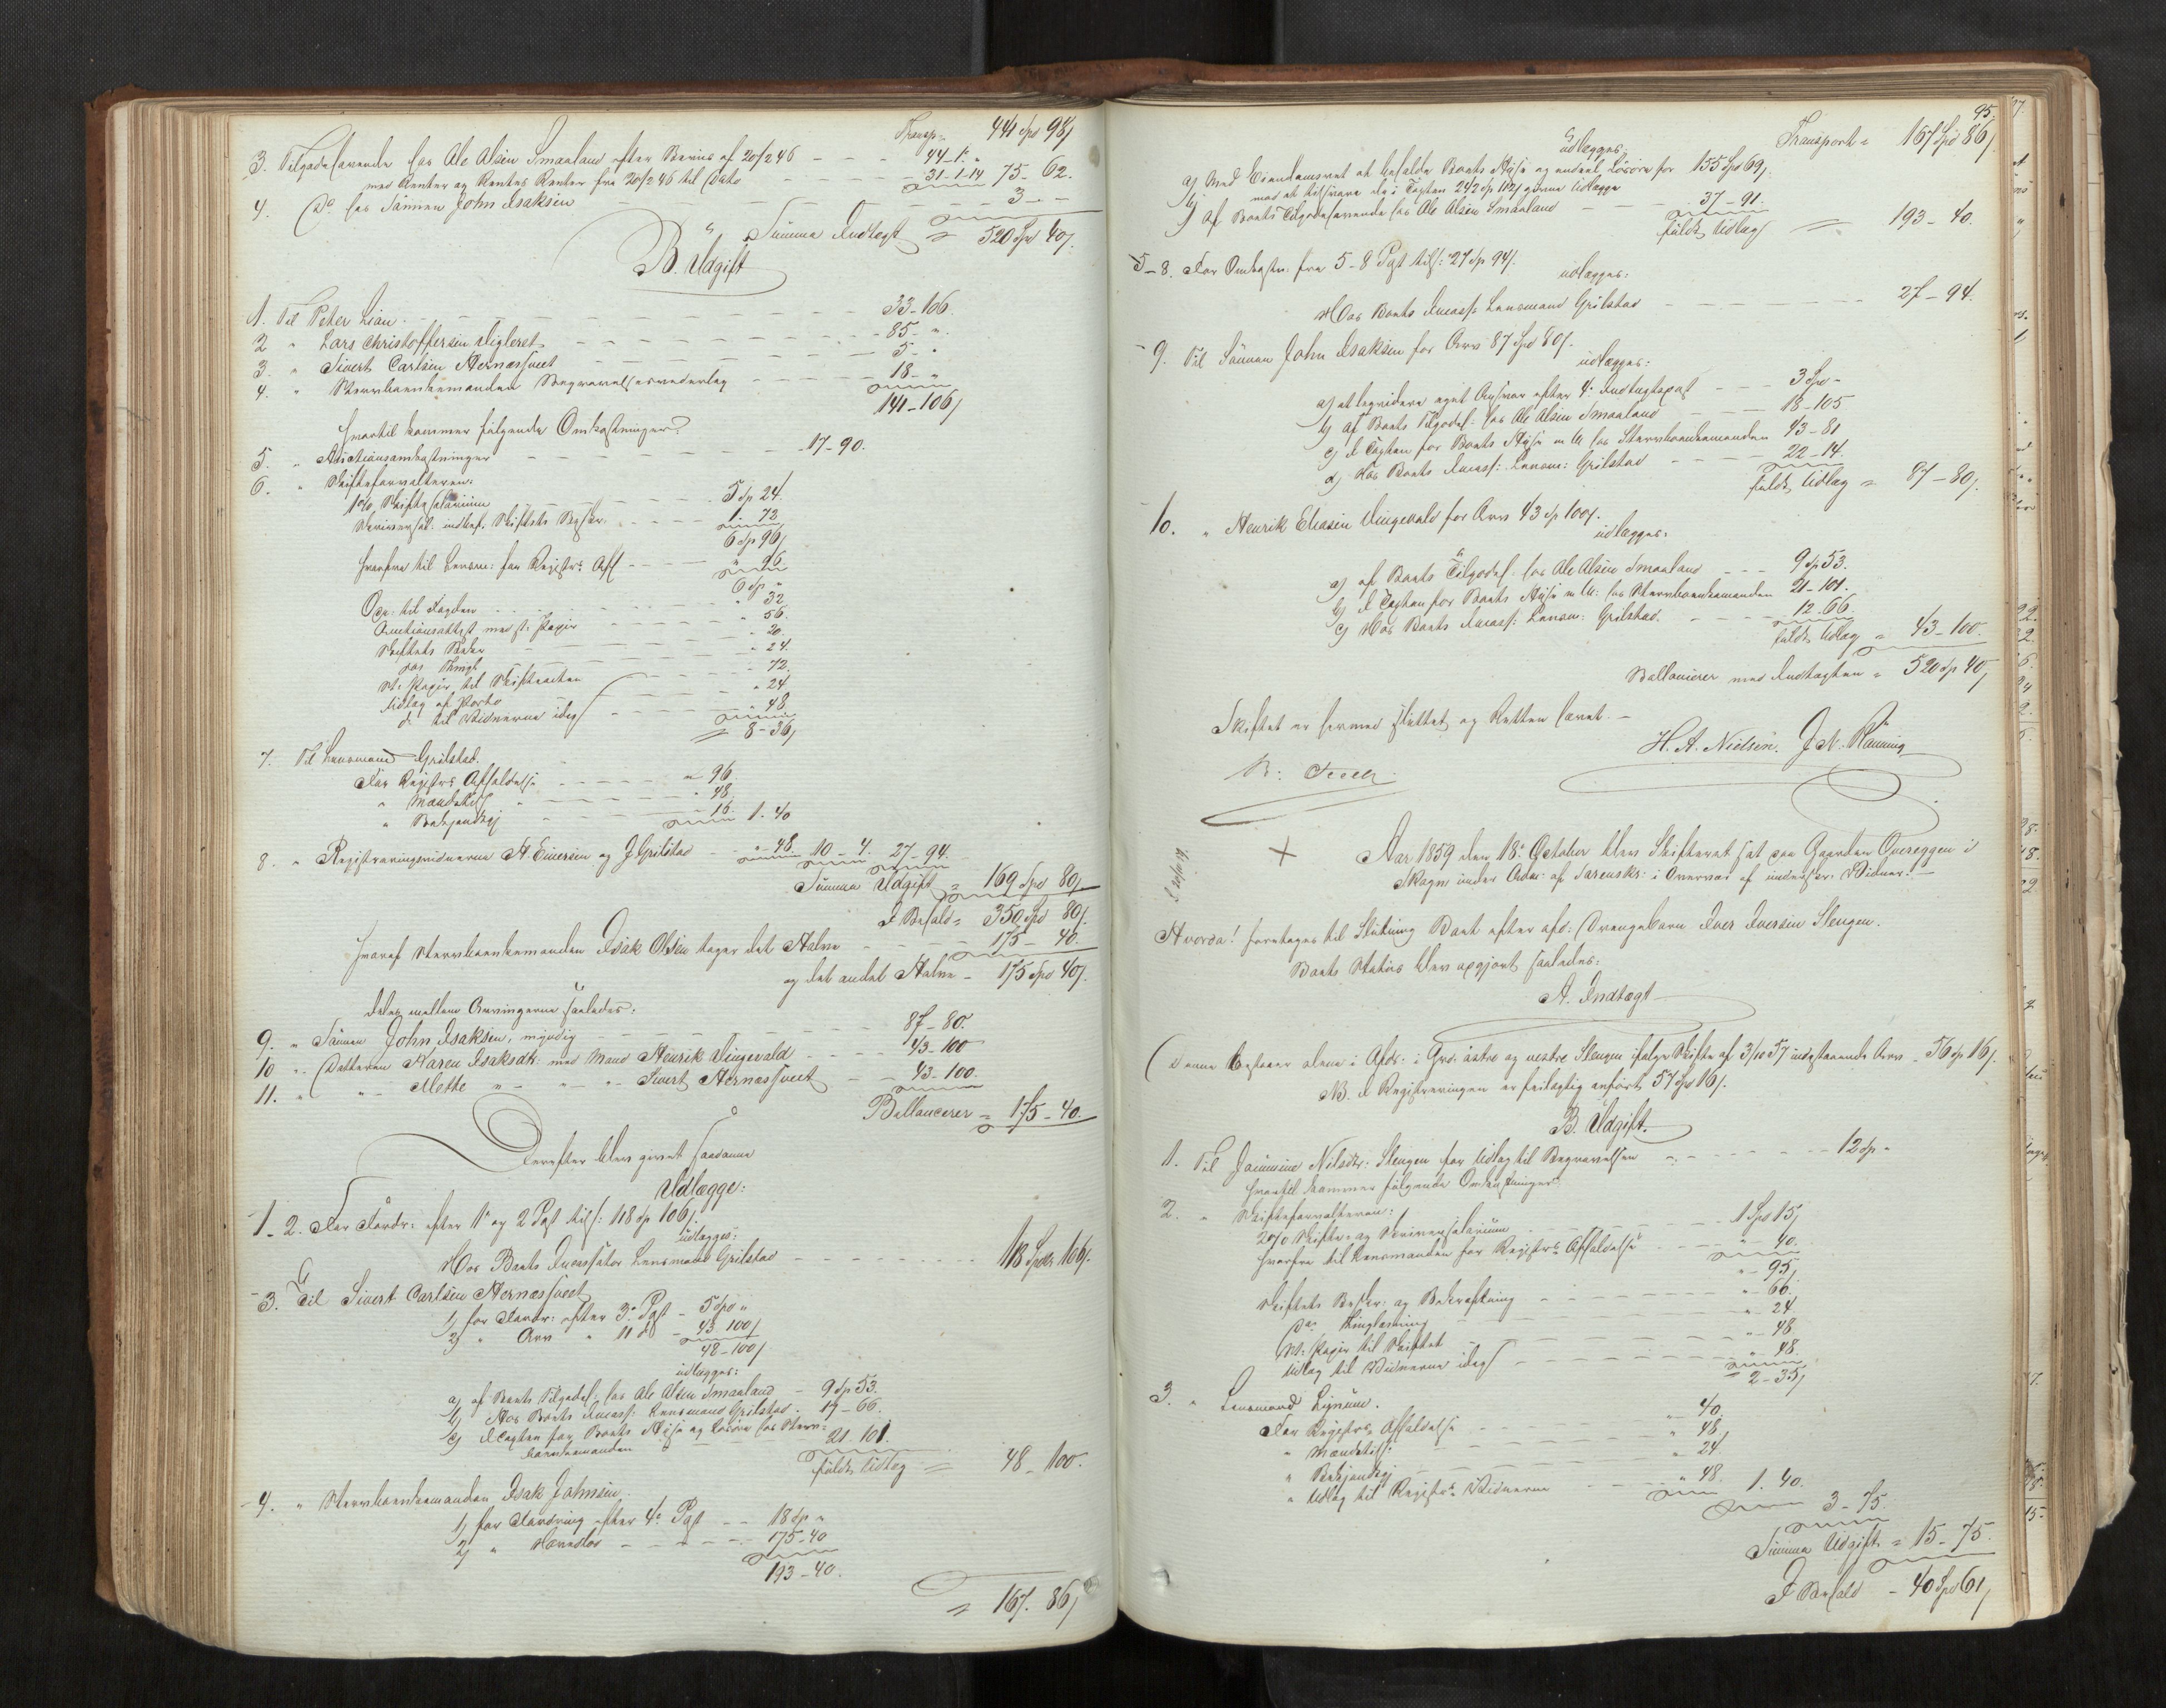 Transp. 441 Spd 98/
3. Tilgodehavende hos Ole Olsen Smaaland efter Beviis af 20/2 46 - - - 44-1. "
med Renter og Rentes Renter fra 20/2 46 til Dato - - - 31-1-14 75-62.
4. Do hos Sønnen John Isaksen - - - 3 - -
Summa Indtægt = 520 Spd 40/
B. Udgift
1. Til Peter Lian - - - 33-106.
2 " Lars Christoffersen - - - 85 - "
3. " Sivert Carlsen Hernæshvect - - - 5 - "
4. " Stervboenkemanden Begravelsesvederlag - - - 18 - "
141-106/
hvortil kommer følgende Omkostninger:
5. " Auctionsomkostninger - - - 17-90.
6. " Skifteforvalteren:
1% Skiftesalarium - - - 5 Sp 24.
Skriversal: indbef. Skiftets - - - 1. 72
6 Sp 96/
hvorfra til Lensm: for Registrs Afh - - - " 96
6 Sp "
til Fogden - - - " 32
Auctionsattest med st: Papir - - - " 56.
Skiftets - - - " 20.
- - - " 24.
St: Papir til Skifteacten - - - " 72.
Udlæg af Porto - - - " 24
do til Vidnerne idag - - - " 48
= 8-36/
7. Til Lensmand Grilstad.
For Registrs Afholdelse - - - " 96.
" - - - " 48
" Bekjendtgj - - - " 16. 1. 40
8. " Registreringsvidnerne H. Einersen og J. Grilstad - " 48 10-4. 27-94.
Summa Udgift = 169 Spd 80/
I Behold = 350 Spd 80/.
hvoraf Stervboenkemanden Isak Olsen tager det Halve - - - 175-40.
og det andet Halve - 175 Spd 40/.
deles mellem Arvingerne saaledes:
9. " Sønnen John Isaksen, myndig - - - 87-80.
10 " Datteren Karen Isaksdtr: med Mand Henrik Vingevald - - - 43-100
11. " " - Mette " - " - " - Sivert Hernæshvect - - - 43-100.
Ballancerer = 175-40.
Derefter blev givet saadanne
Udlægge:
1-2. For Fordr: efter 1ste og 2 Pgt tils: 118 Sp 106/.
udlægges:
Hos Boets Incassator Lensmand Grilstad - - - 118 Spdlr 106/.
3. Til Sivert Carlsen Hernæshvect
1) for Fordr: efter 3die Pgt - 5 Spd "
2) " Arv " 11 do - 43 100/
48-100/
udlægges:
a) af Boets Tilgodeh: hos Ole Olsen Smaaland - 9 Sp 53.
b) Hos Boets Incass: Lensmand Grilstad - 17-66.
c) I Tægten for Boets og Løsøre hos Sterv-
boenkemanden - - - 21. 101.
fuldt Udlæg = 48-100.
4. " Stervboenkemanden Isak Johnsen.
1) for Fordring efter 4de Pgt - - 18 Sp "
2) " - - - 175-40
193-40.
= 167. 86/

95.
Transport = 167 Spd 86/
udlægges:
a) Med Eiendomsret at beholde Boets og andeel Løsøre for 155 Spd 69/.
mod at tilsvare de i Tægten 242 Sp 112/ givne Udlægge
b) Af Boets Tilgodehavende hos Ole Olsen Smaaland - - - 37-91.
fuldt Udlæg = 193-40.
5-8. For Omkostn: fra 5-8 Pgt tils: 27 Sp 94/.
udlægges:
Hos Boets Incass: Lensmand Grilstad - - - 27-94.
9. Til Sønnen John Isaksen for Arv 87 Spd 80/.
udlægges:
a) at leqvidere eget Ansvar efter 4de Indtægtspost - - - 3 Sp -
b) Af Boets Tilgodeh: hos Ole Olsen Smaaland - - - 18-105
c) I Tægten for Boets m M hos Stervboenkemanden 43-81
d) Hos Boets Incass: Lensm: Grilstad - - - 22-14.
fuldt Udlæg = 87-80/.
10. " Henrik Eliasen Vingevald for Arv 43 Sp 100/.
udlægges:
a) af Boets Tilgodeh: hos Ole Olsen Smaaland - - - 9 Sp 53.
b) I Tægten for Boets m M: hos Stervboenkemanden 21-101.
c) Hos Boets Incass: Lensm: Grilstad. - - - 12 66.
fuldt Udlæg = 43-100.
Ballancerer med Indtægten = 520 Sp 40/
Skiftet er hermed sluttet og Retten hævet. -
H. A. Nielsen. J N. Rønning
Aar 1859 den 18de October blev Skifteret sat paa Gaarden Overeggen i
Skogn under Adm: af Sorenskr: i Overvær af undersk: Vidner. -
Hvorda! foretoges til Slutning Boet efter afd: Drengebarn Iver Iversen Stengen.
Boets Status blev opgjort saaledes:
A. Indtægt
Denne bestaaer alene i Afd: i Grd: østre og vestre Stengen ifølge Skifte af 3/10 57 indestaaende Arv - 56 Sp 16/.
NB. I Registreringen er feilagtig anført 57 Spd 16/.
B. Udgift.
1. Til Jannine Nilsdtr: Stengen for Udlæg til Begravelsen - - - 12 Sp -
hvortil kommer følgende Omkostninger
2. " Skifteforvalteren:
2% Skifte- og Skriversalarium - - - 1 Spd 15/
hvorfra til Lensmanden for Registrs Afholdelse - - - " 40.
" - 95/
Skiftets og Bekræftning - - - " - 60.
Do Thinglæsning - - - " - 24.
St: Papir til Skiftet - - - " - 48.
Udlæg til Vidnerne idag - - - " - 48.
= 2-35/
3. " Lensmand Lynum.
For Registrs Afholdelse - - - " - 40.
" - - - " 48.
" Bekjendtgj - - - " 24.
" Udlæg til Registrs Vidnerne - - - " 48. 1. 40.
3-75.
Summa Udgift = 15-75.
I Behold - 40 Spd 61/